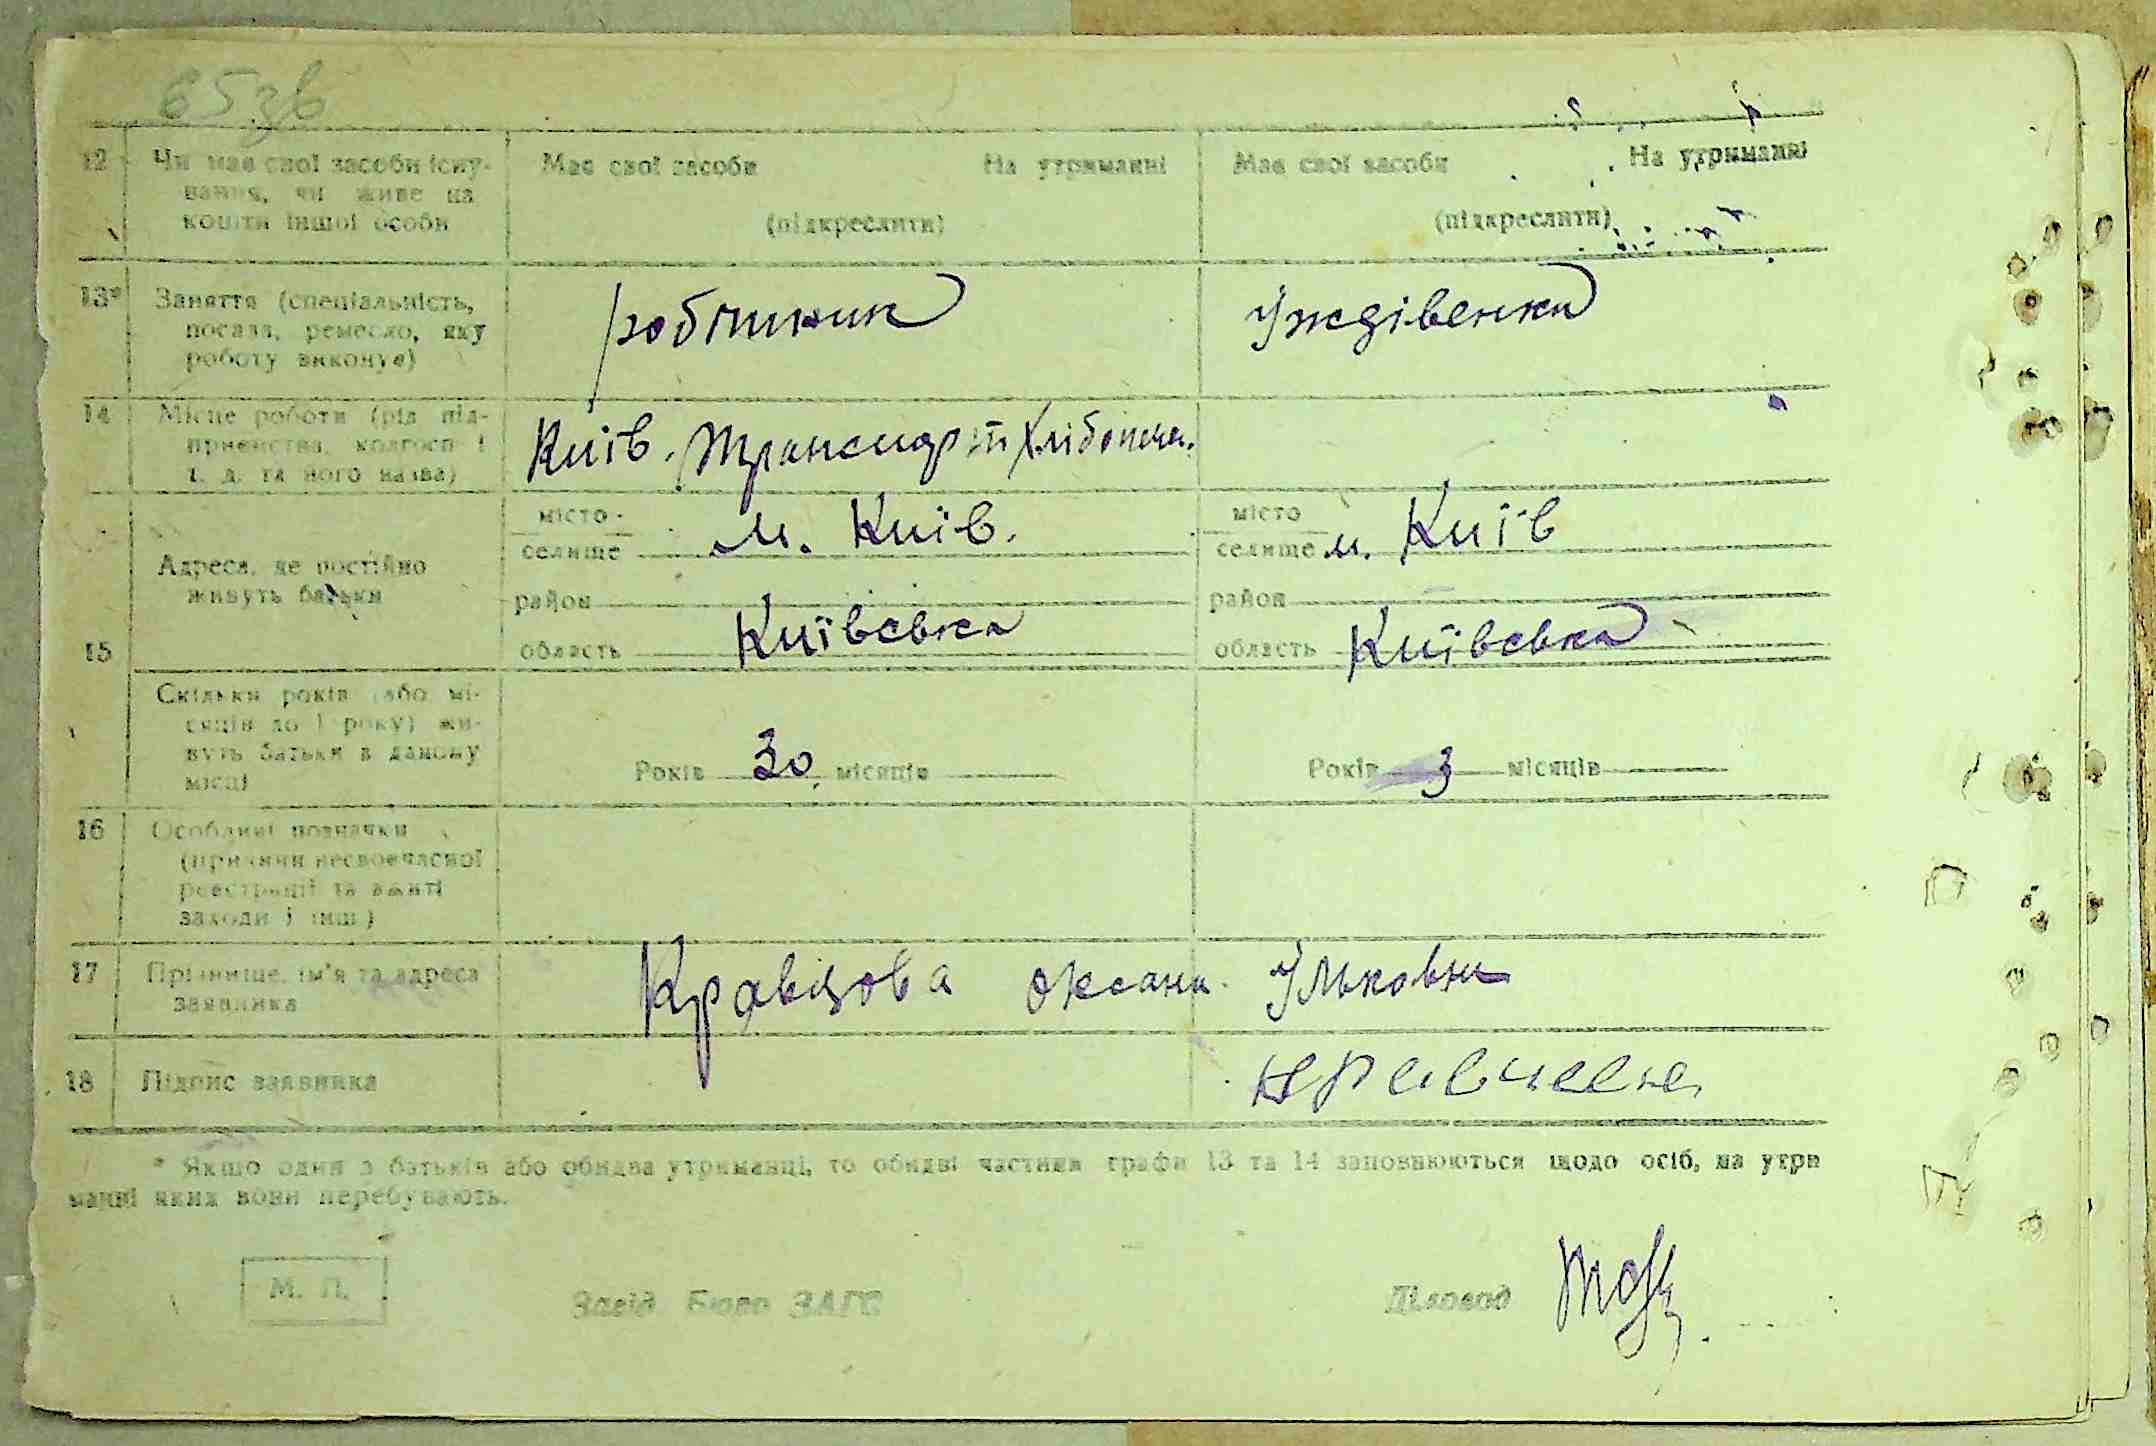 65зв
12 Чи має свої засоби існу- Має свої засоби На утриманні Має свої засоби На утриманні
вання, чи живе на
кошти іншої особи (підкреслити) (підкреслити)
13* Заняття (спеціальність, робітник Уждівенка
посада, ремесло, яку
роботу виконує)
14 Місце роботи (рід під- Київ.
приємства, колгосп і
т. д. та його назва)
місто м. Київ. місто м. Київ
селище селище
Адреса, де постійно
живуть батьки
район район
15 область Київська область Київська
Скільки років (або мі-
сяців до 1 року) жи-
вуть батьки в даному
місці Років 30 місяців Років 3 місяців
16 Особливі позначки
(причини несвоєчасної
реєстрації та вжиті
заходи і інш.)
17 Прізвище, ім'я та адреса Кравцова Оксана
заявника
18 Підпис заявника
* Якщо один з батьків або обидва утриманці, то обидві частини графи 13 та 14 заповнюються щодо осіб, на утри
манні яких вони перебувають.
М. П. Завід Бюро ЗАГС Діловод